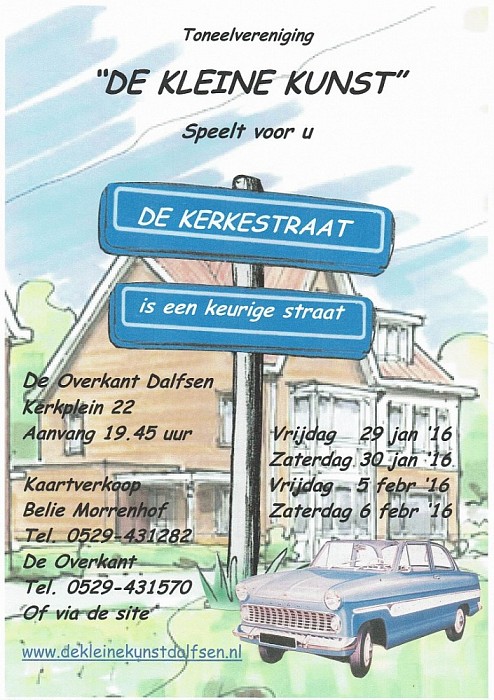 Toneelvereniging
“DE KLEINE KUNST”
Speelt voor u
DE KERKESTRAAT
is een keurige straat
De Overkant Dalfsen
Kerkplein 22
Aanvang 19.45 uur
Vrijdag 29 jan '16
Zaterdag 30 jan '16
Vrijdag 5 febr '16
Zaterdag 6 febr '16
Kaartverkoop
Belie Morrenhof
Tel. 0529-431282
De Overkant
Tel. 0529-431570
Of via de site
www.dekleinekunstdalfsen.nl